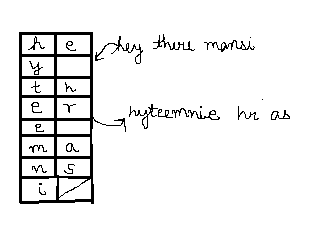 h e
y
t h
e r
e
m a
n s
i
hey there mansi
hyteemnie hr as